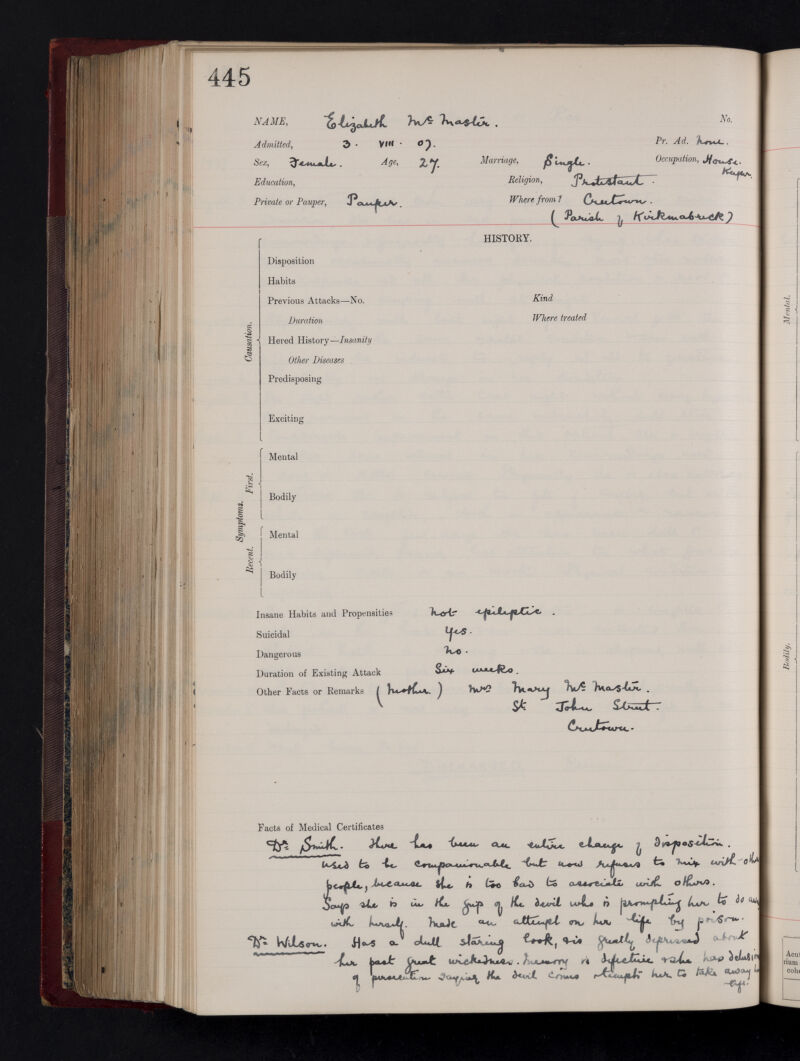 445
NAME, Elizabeth McMaster. No.
Admitted, 3 · VIII · 07. Pr. Ad. None.
Sex, Female. Age, 27. Marriage, Single. Occupation, House-
Keeper.
Education, Religion, Protestant.
Private or Pauper, Pauper. Where from? Creetown.
(Parish of Kirkmabreck)
HISTORY.
Causation.
Disposition
Habits
Previous Attacks—No. Kind
Duration Where treated
Hered History—Insanity
Other Diseases
Predisposing
Exciting
Symptoms.
First.
Mental
Bodily
Recent.
Mental
Bodily
Insane Habits and Propensities Not epileptic.
Suicidal Yes.
Dangerous No.
Duration of Existing Attack Six weeks.
Other Facts or Remarks (Mother.) Mrs Mary McMaster.
St John Street.
Creetown.
Facts of Medical Certificates
Dr Smith. There has been an entire change of disposition.
Used to be companionable but now refuses to mix with
people, because she is too bad to associate with others.
Says she is in the grip of the devil who is prompting her to do
with herself. Made an attempt on her life by poison.
Dr Wilson. Has a dull staring look, & is greatly depressed about
her past great wickedness. Memory is defective & she has
of persecution saying the devil comes & tempts her to take away
life.
Mental.
Bodily.